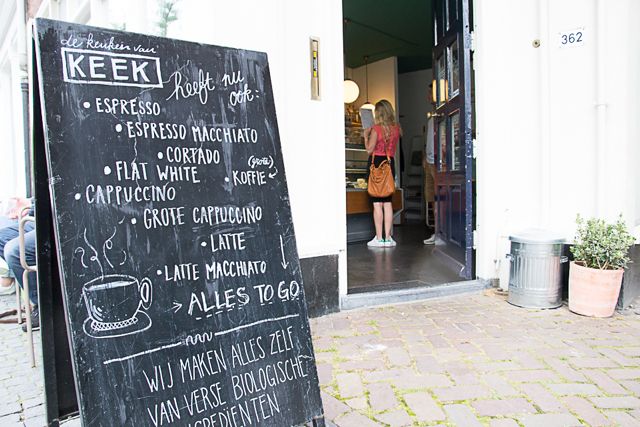 de keuken van
KEEK
heeft nu
ook:
• ESPRESSO
• ESPRESSO MACCHIATO
• CORTADO
• FLAT WHITE
(grote)
• KOFFIE
• CAPPUCCINO
• GROTE CAPPUCCINO
• LATTE
• LATTE MACCHIATO
→ ALLES TO GO
WIJ MAKEN ALLES ZELF
VAN VERSE BIOLOGISCHE
INGREDIENTEN
362